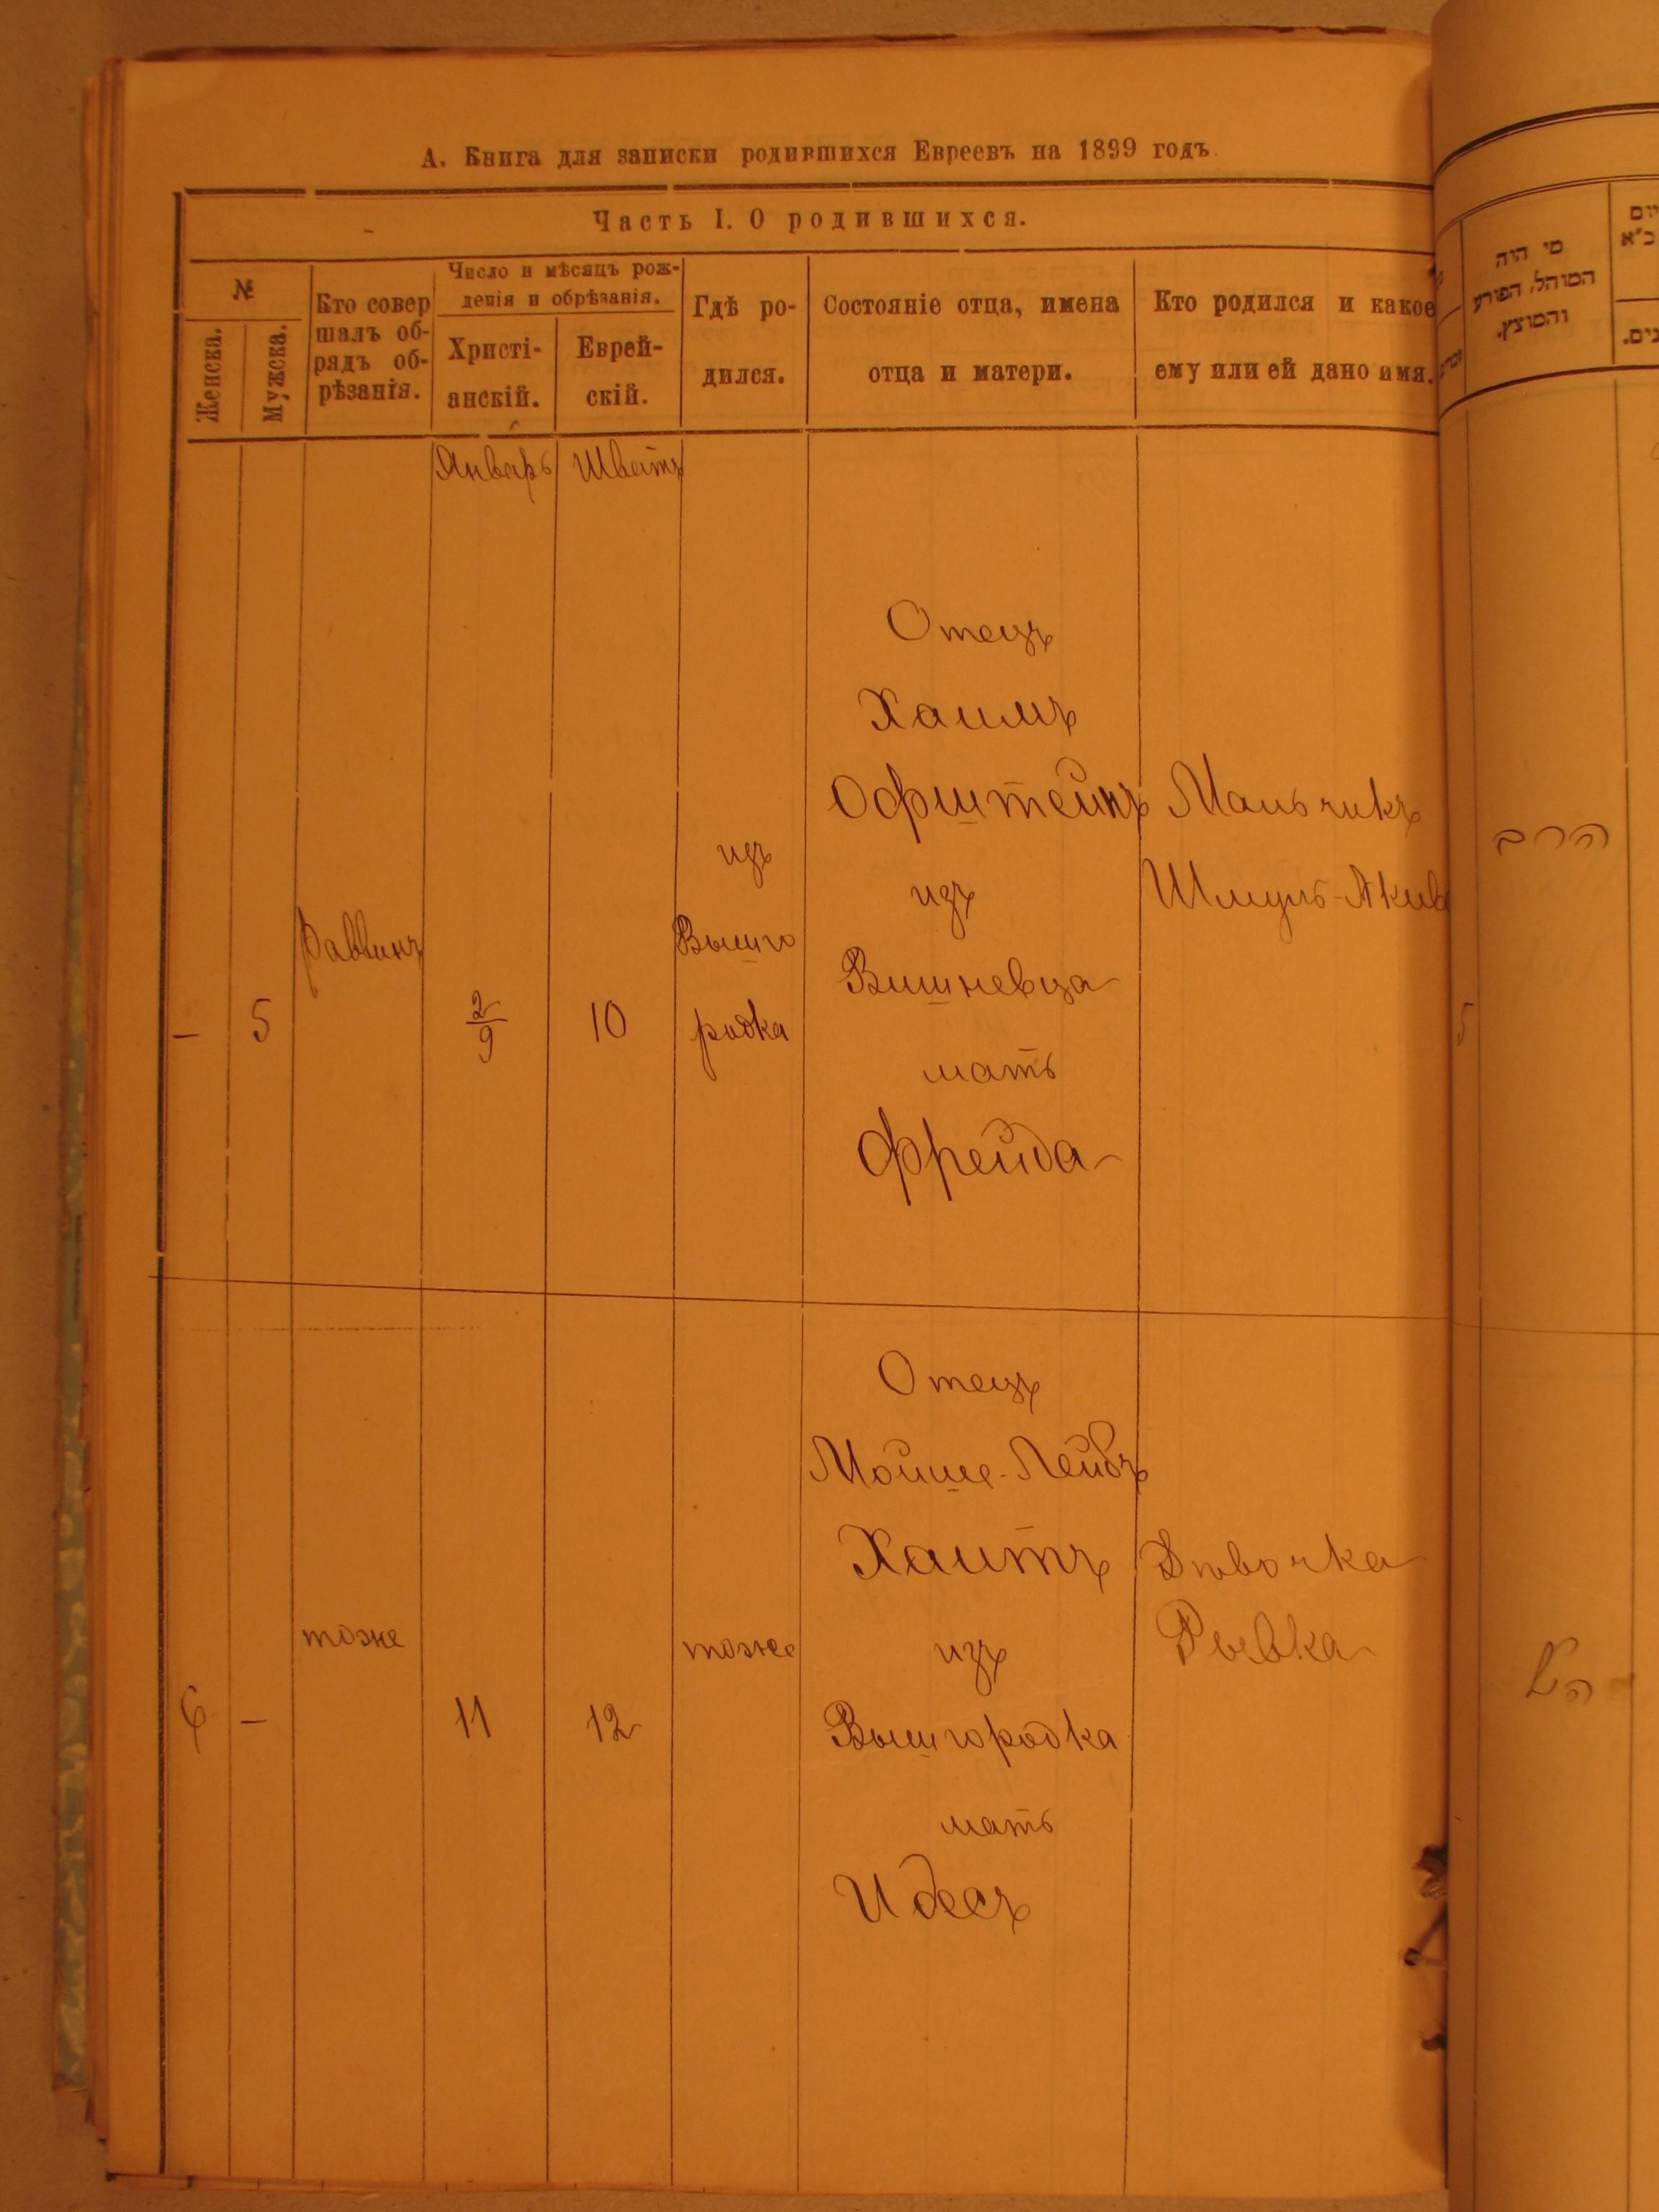 А. Книга для записки родившихся Евреевъ на 1899 годъ
Часть I. О родившихся.
№
Женска.
Мужска.
Кто совер
шалъ об-
рядъ об-
рѣзанія.
Число и мѣсяцъ рож-
денія и обрѣзанія.
Христі-
анскій.
Еврей-
скій.
Гдѣ ро-
дился.
Состояніе отца, имена
отца и матери.
Кто родился и какое
ему или ей дано имя.
Январь
Шватъ
–
5
Раввинъ
2/9
10
изъ
Вышго
родка
Отецъ
Хаимъ
Офштейнъ
изъ
Вишневца
мать
Фрейда
Мальчикъ
Шмуль-Акива
6
–
тоже
11
12
тоже
Отецъ
Мойше-Лейбъ
Хаитъ
изъ
Вышгородка
мать
Идесъ
Дѣвочка
Рывка
מי היה
המוהל, הפורע
והמוצץ.
5
הרב